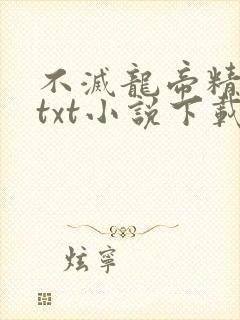 不滅龍帝精
txt小說下載
炫寧